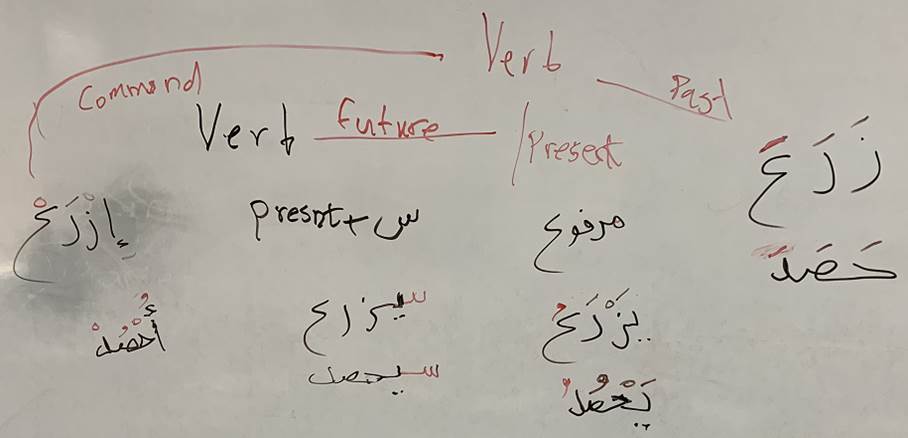 Verb
Command
Past
Verb future
Present
زَرَعَ
حَصَدَ
مرفوع
يَزْرَعُ
يَحْصُدُ
presnt + س
سيزرع
سيحصد
إِزْرَعْ
أُحْصُدْ